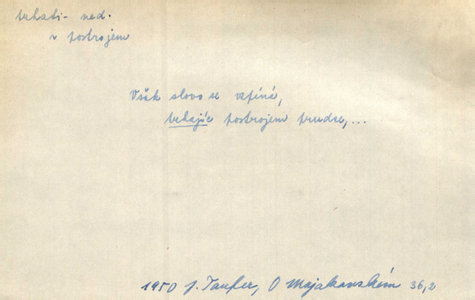 trhati - ned.
v postrojem
Však slovo se vzpíná,
trhajíc postrojem prudce,...
1950 J. Taufer, O Majakovském 36,2